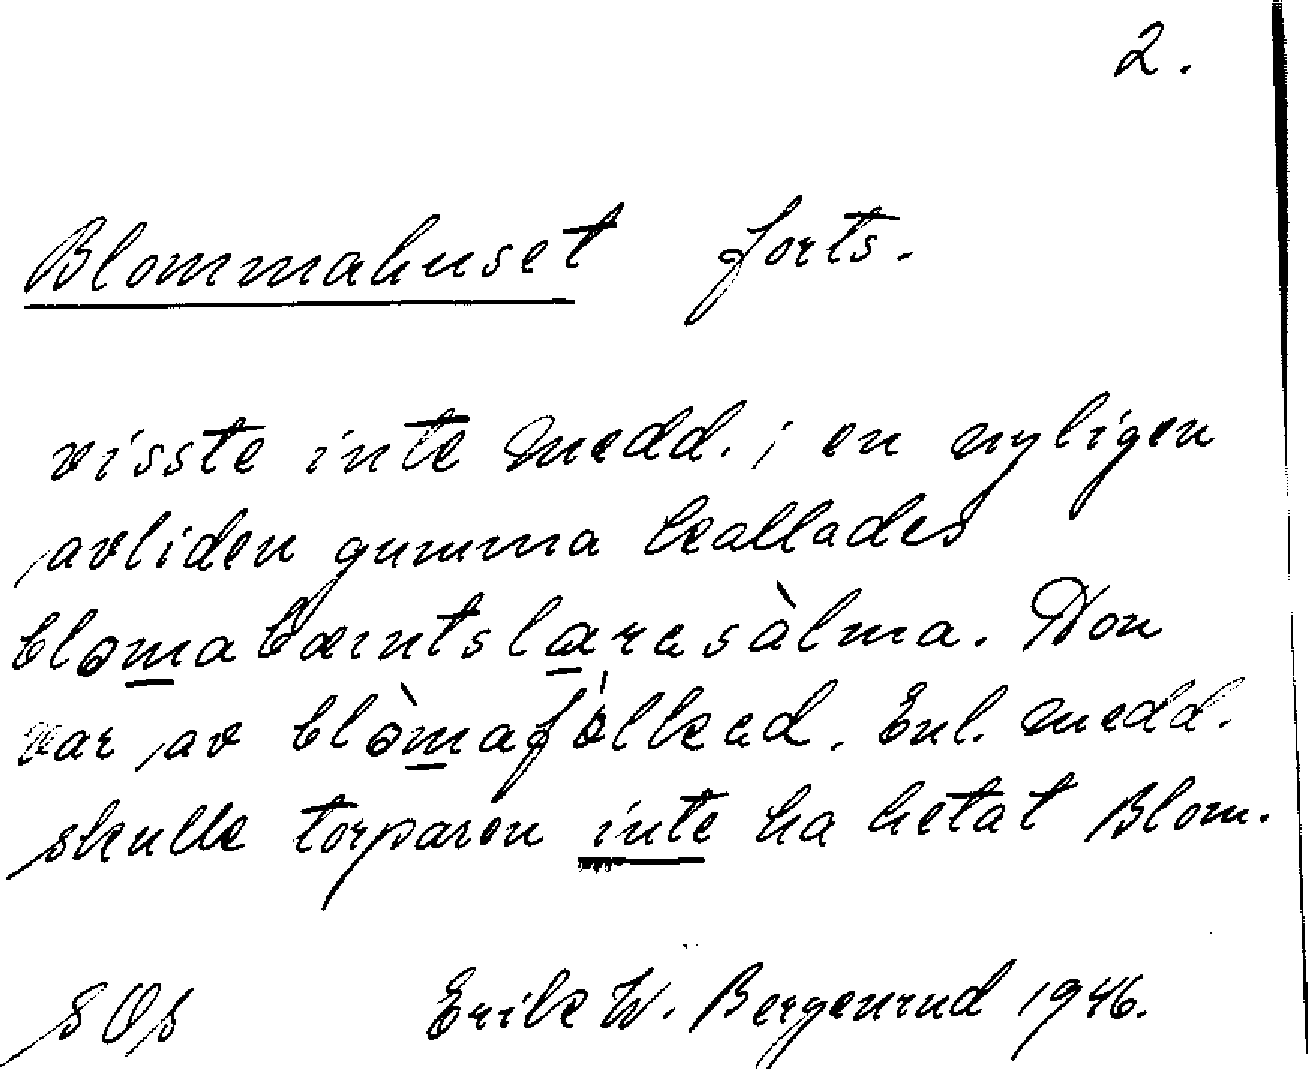 2.
Blommahuset forts.
visste inte medd.; en nyligen
avliden gumma kallades
blomabæntslæresàlma. Hon
var av blòmafòlked. Enl. medd.
skulle torparen inte ha hetat Blom.
SOs Erik W. Bergenrud 1946.